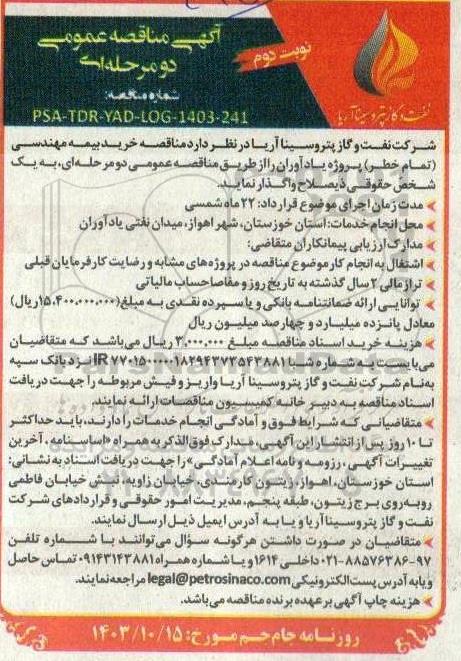 آگهی مناقصه عمومی
دو مرحله‌ای
نوبت دوم
شماره مناقصه:
PSA-TDR-YAD-LOG-1403-241
نفت و گاز پتروسینا آریا
شرکت نفت و گاز پتروسینا آریا در نظر دارد مناقصه خرید بیمه مهندسی
(تمام خطر) پروژه یادآوران را از طریق مناقصه عمومی دو مرحله‌ای، به یک
شخص حقوقی ذیصلاح واگذار نماید.
مدت زمان اجرای موضوع قرارداد: ۲۲ ماه شمسی
محل انجام خدمات: استان خوزستان، شهر اهواز، میدان نفتی یادآوران
مدارک ارزیابی پیمانکاران متقاضی:
اشتغال به انجام کار موضوع مناقصه در پروژه‌های مشابه و رضایت کارفرمایان قبلی
ترازمالی ۲ سال گذشته به تاریخ روز و مفاصاحساب مالیاتی
توانایی ارائه ضمانتنامه بانکی و یا سپرده نقدی به مبلغ (۱۵،۴۰۰،۰۰۰،۰۰۰ریال)
معادل پانزده میلیارد و چهارصد میلیون ریال
هزینه خرید اسناد مناقصه مبلغ ۳،۰۰۰،۰۰۰ ریال می‌باشد که متقاضیان
می‌بایست به شماره شبا IR ۷۷۰۱۵۰۰۰۰۰۱۸۲۹۴۳۷۳۵۴۳۸۸۱ نزد بانک سپه
به‌نام شرکت نفت و گاز پتروسینا آریا واریز و فیش مربوطه را جهت دریافت
اسناد مناقصه به دبیرخانه کمیسیون مناقصات ارائه نمایند.
متقاضیانی که شرایط فوق و آمادگی انجام خدمات را دارند، باید حداکثر
تا ۱۰ روز پس از انتشار این آگهی، مدارک فوق‌الذکر به همراه «اساسنامه، آخرین
تغییرات آگهی، رزومه و نامه اعلام آمادگی» را جهت دریافت اسناد به نشانی:
استان خوزستان، اهواز، زیتون کارمندی، خیابان زاویه، نبش خیابان فاطمی
روبه‌روی برج زیتون، طبقه پنجم، مدیریت امور حقوقی و قراردادهای شرکت
نفت و گاز پتروسینا آریا و یا به آدرس ایمیل ذیل ارسال نمایند.
متقاضیان در صورت داشتن هرگونه سؤال می‌توانند با شماره تلفن
۰۲۱-۸۸۵۷۶۳۸۶-۹۷ داخلی ۱۶۱۴ و یا شماره همراه ۰۹۱۴۳۱۴۳۸۸۱ تماس حاصل
و یا به آدرس پست الکترونیکی legal@petrosinaco.com مراجعه نمایند.
هزینه چاپ آگهی بر عهده برنده مناقصه می‌باشد.
روزنامه جام جم مورخ: ۱۴۰۳/۱۰/۱۵